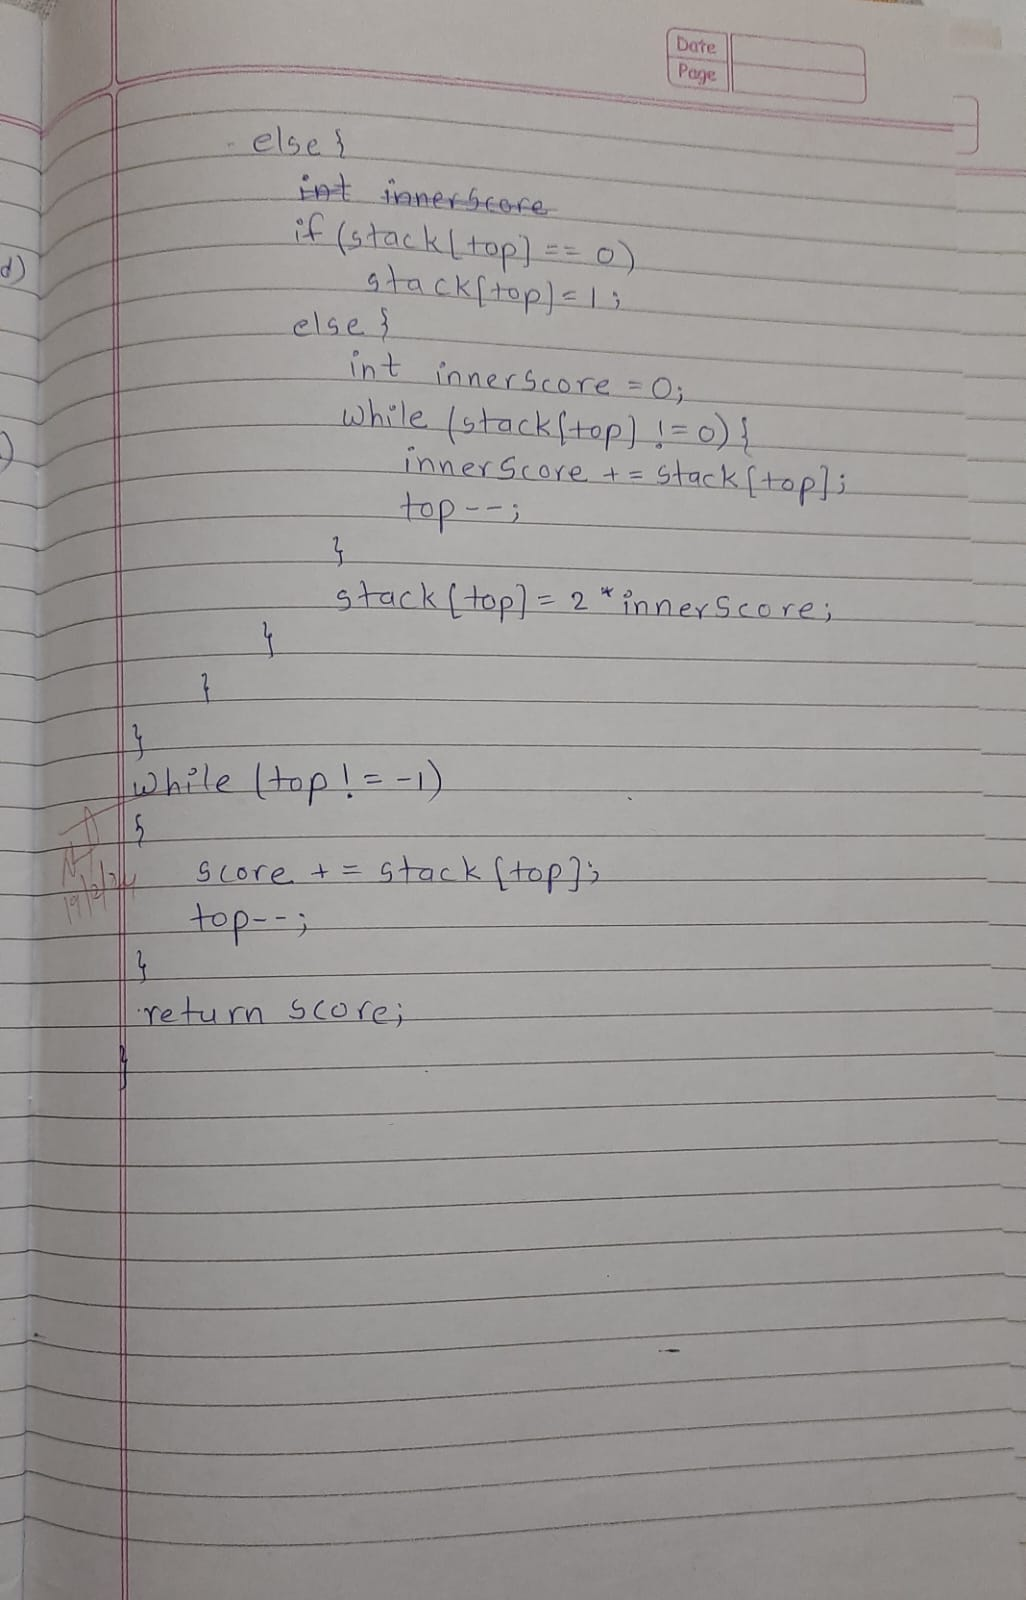 Date
Page
else {
int innerScore
if (stack[top] == 0)
stack[top]=1;
else {
int innerScore = 0;
while (stack[top] != 0) {
innerScore += stack[top];
top--;
}
stack[top] = 2 * innerScore;
}
}
}
while (top != -1)
{
score += stack[top];
top--;
}
return score;
}
d)
)